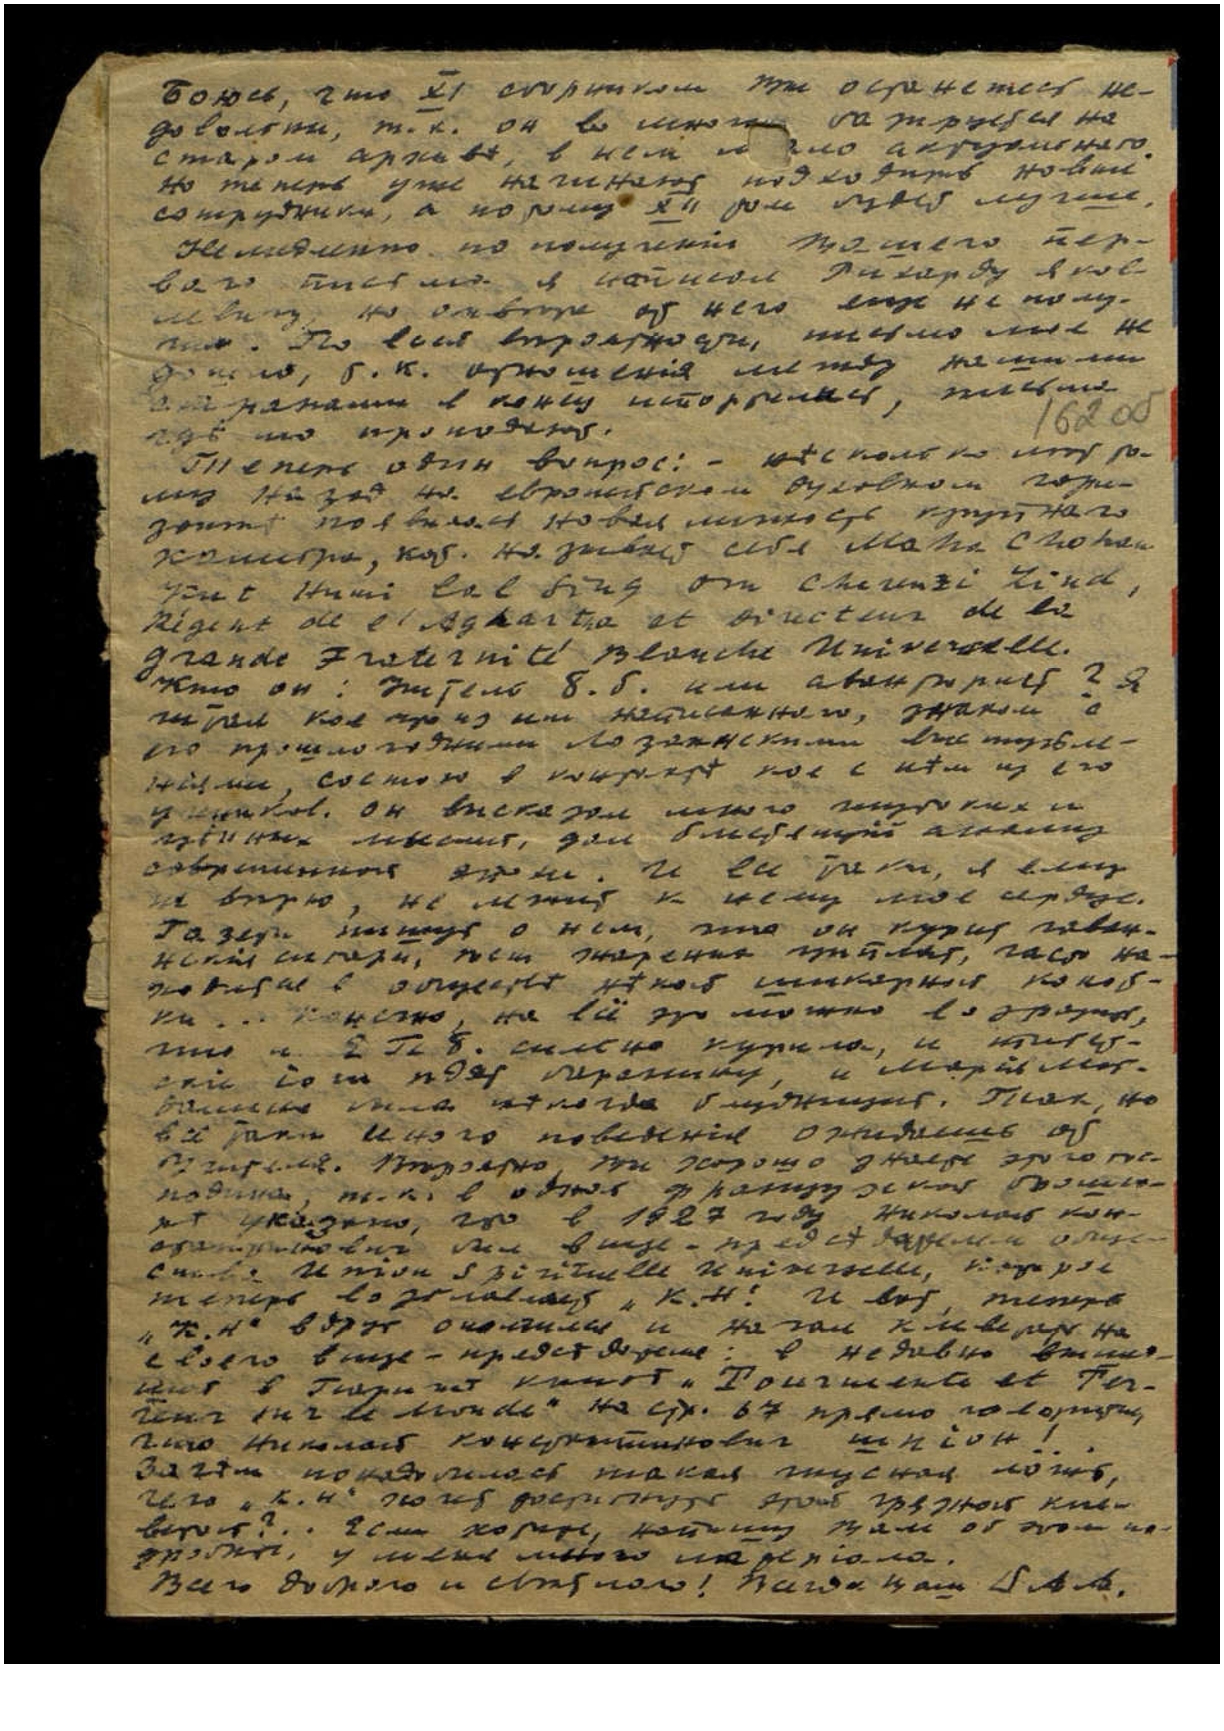 Боюсь, что XI сборником Вы останетесь не-
довольны, т.к. он во многом базируется на
старом архиве, в нем мало актуального.
Но теперь уже начинают подходить новые
сотрудники, а потому XII том будет лучше.
Немедленно по полученiи Вашего пер-
ваго письма я написал Рихарду Яков-
левичу, но ответа от него еще не полу-
чил. По всей вероятности, письмо мое не
дошло, т.к. отношенiя между нашими
странами в конец испортились, письма
где то пропадают.
162 об
Теперь один вопрос: – нѣсколько лет то-
му назад на европейском духовном гори-
зонтѣ появилась новая личность крупнаго
калибра, кот. называет себя Maha Chohan
Kut Humi Lal Sing Om Cherenzi Lind,
Régent de l'Agharta et Directeur de la
Grande Fraternité Blanche Universelle.
Кто он: Учитель Б.б. или авантюрист? Я
читал кое что из им написанного, знаком с
его прошлогодними лозаннскими выступле-
нiями, состою в контактѣ кое с кѣм из его
учеников. Он высказал много глубоких и
цѣнных мыслей, дал блестящiй анализ
современной эпохи. И все таки, я ему
не вѣрю, не лежит к нему мое сердце.
Газеты пишут о нем, что он курит гаван-
нскiя сигары, ест жареных цыплят, часто на-
ходится в обществѣ нѣкой шикарной кокот-
ки... Конечно, на всё это можно возразить,
что и Е.П.Б. сильно курила, и тибет-
скiе ламы едят баранину, и Марiя Маг-
далина была нѣкогда блудницей. Так, но
всё таки иного поведенiя ожидаешь от
Учителя. Вѣроятно, Вы хорошо знаете этого гос-
подина, т.к. в одной французской брошю-
рѣ указано, что в 1927 году Николай Кон-
стантинович был вице-предсѣдателем обще-
ства Union Spirituelle Universelle, которое
теперь возглавляет „К.Н". И вот, теперь
„К.Н" вдруг ополчился и начал клеветать на
своего вице-предсѣдателя: в недавно вышед-
шей в Парижѣ книгѣ „Tourmente et Ter-
reur sur le Monde" на стр. 67 прямо говорится,
что Николай Константинович шпiон!..
Зачѣм понадобилась такая гнусная ложь,
чего „К.Н" хочет достигнуть этой грязной кле-
ветой?.. Если хотите, напишу Вам об этом по-
дробнѣе, у меня много матерiала.
Всего доброго и свѣтлого! Всегда Ваш